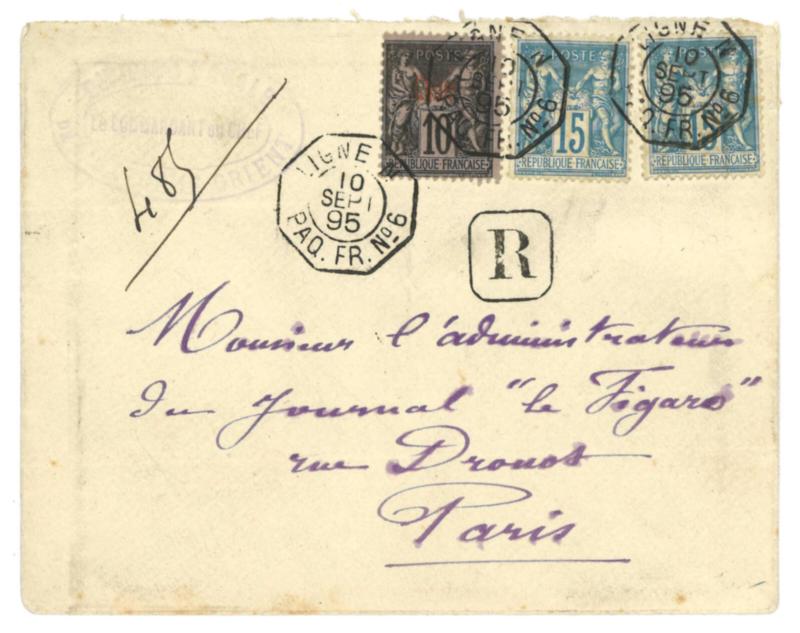 POSTE
10
RÉPUBLIQUE FRANÇAISE
POSTE
15
RÉPUBLIQUE FRANÇAISE
POSTE
15
RÉPUBLIQUE FRANÇAISE
LIGNE N
10
SEPT
95
PAQ. FR. No 6
LIGNE N
10
SEPT
95
PAQ. FR. No 6
LIGNE N
10
SEPT
95
PAQ. FR. No 6
LE COMMANDANT EN CHEF
ORIENT
485
R
Monsieur l'administrateur
du Journal "le Figaro"
rue Drouot
Paris